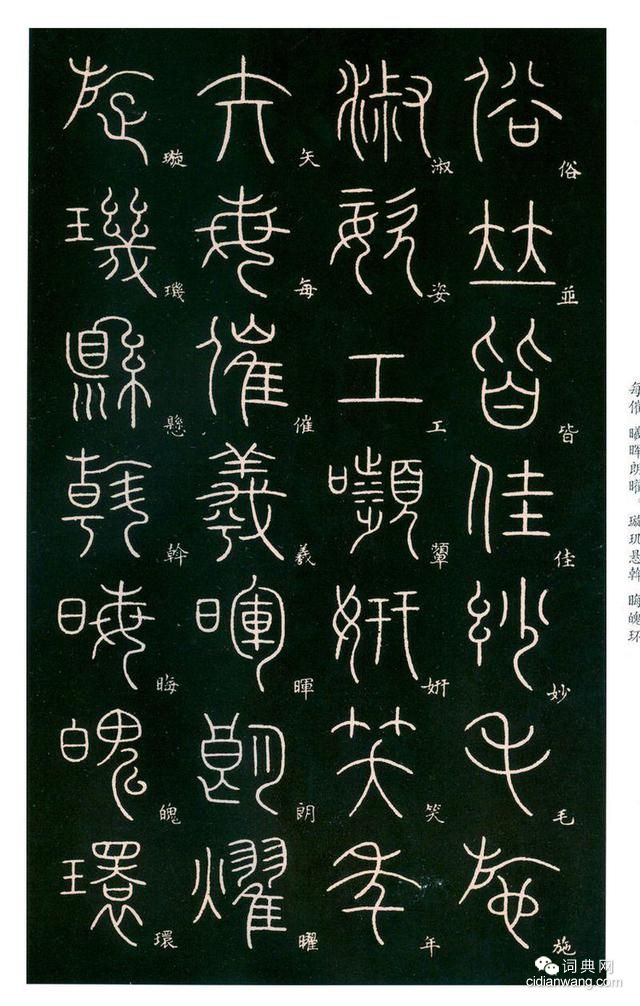 俗並皆佳妙毛施
淑姿工顰妍笑年
矢每催羲暉朗曜
璇璣懸斡晦魄環
每催 曦晖朗曜 璇玑悬斡 晦魄环
词典网
cidianwang.com